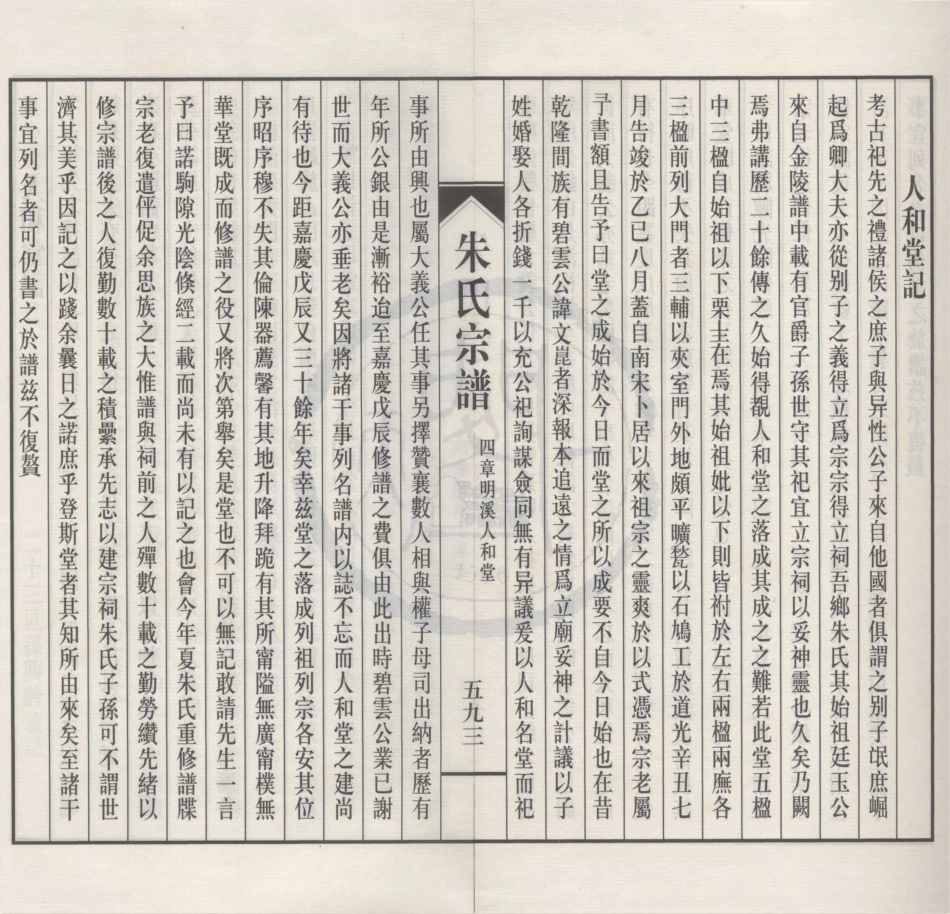 人和堂記
考古祀先之禮諸侯之庶子與异性公子來自他國者俱謂之别子氓庶崛
起爲卿大夫亦從别子之義得立爲宗宗得立祠吾鄉朱氏其始祖廷玉公
來自金陵譜中載有官爵子孫世守其祀宜立宗祠以妥神靈也久矣乃闕
焉弗講歷二十餘傳之久始得覩人和堂之落成其成之之難若此堂五楹
中三楹自始祖以下栗主在焉其始祖妣以下則皆祔於左右兩楹兩廡各
三楹前列大門者三輔以夾室門外地頗平曠甃以石鳩工於道光辛丑七
月告竣於乙巳八月蓋自南宋卜居以來祖宗之靈爽於以式憑焉宗老屬
予書額且告予曰堂之成始於今日而堂之所以成要不自今日始也在昔
乾隆間族有碧雲公諱文崑者深報本追遠之情爲立廟妥神之計議以子
姓婚娶人各折錢一千以充公祀詢謀僉同無有异議爰以人和名堂而祀
朱氏宗譜
四章明溪人和堂
五九三
事所由興也屬大義公任其事另擇贊襄數人相與權子母司出納者歷有
年所公銀由是漸裕迨至嘉慶戊辰修譜之費俱由此出時碧雲公業已謝
世而大義公亦垂老矣因將諸干事列名譜内以誌不忘而人和堂之建尚
有待也今距嘉慶戊辰又三十餘年矣幸兹堂之落成列祖列宗各安其位
序昭序穆不失其倫陳器薦馨有其地升降拜跪有其所甯隘無廣甯樸無
華堂既成而修譜之役又將次第舉矣是堂也不可以無記敢請先生一言
予曰諾駒隙光陰倐經二載而尚未有以記之也會今年夏朱氏重修譜牒
宗老復遣伻促余思族之大惟譜與祠前之人殫數十載之勤勞纘先緒以
修宗譜後之人復勤數十載之積纍承先志以建宗祠朱氏子孫可不謂世
濟其美乎因記之以踐余曩日之諾庶乎登斯堂者其知所由來矣至諸干
事宜列名者可仍書之於譜兹不復贅